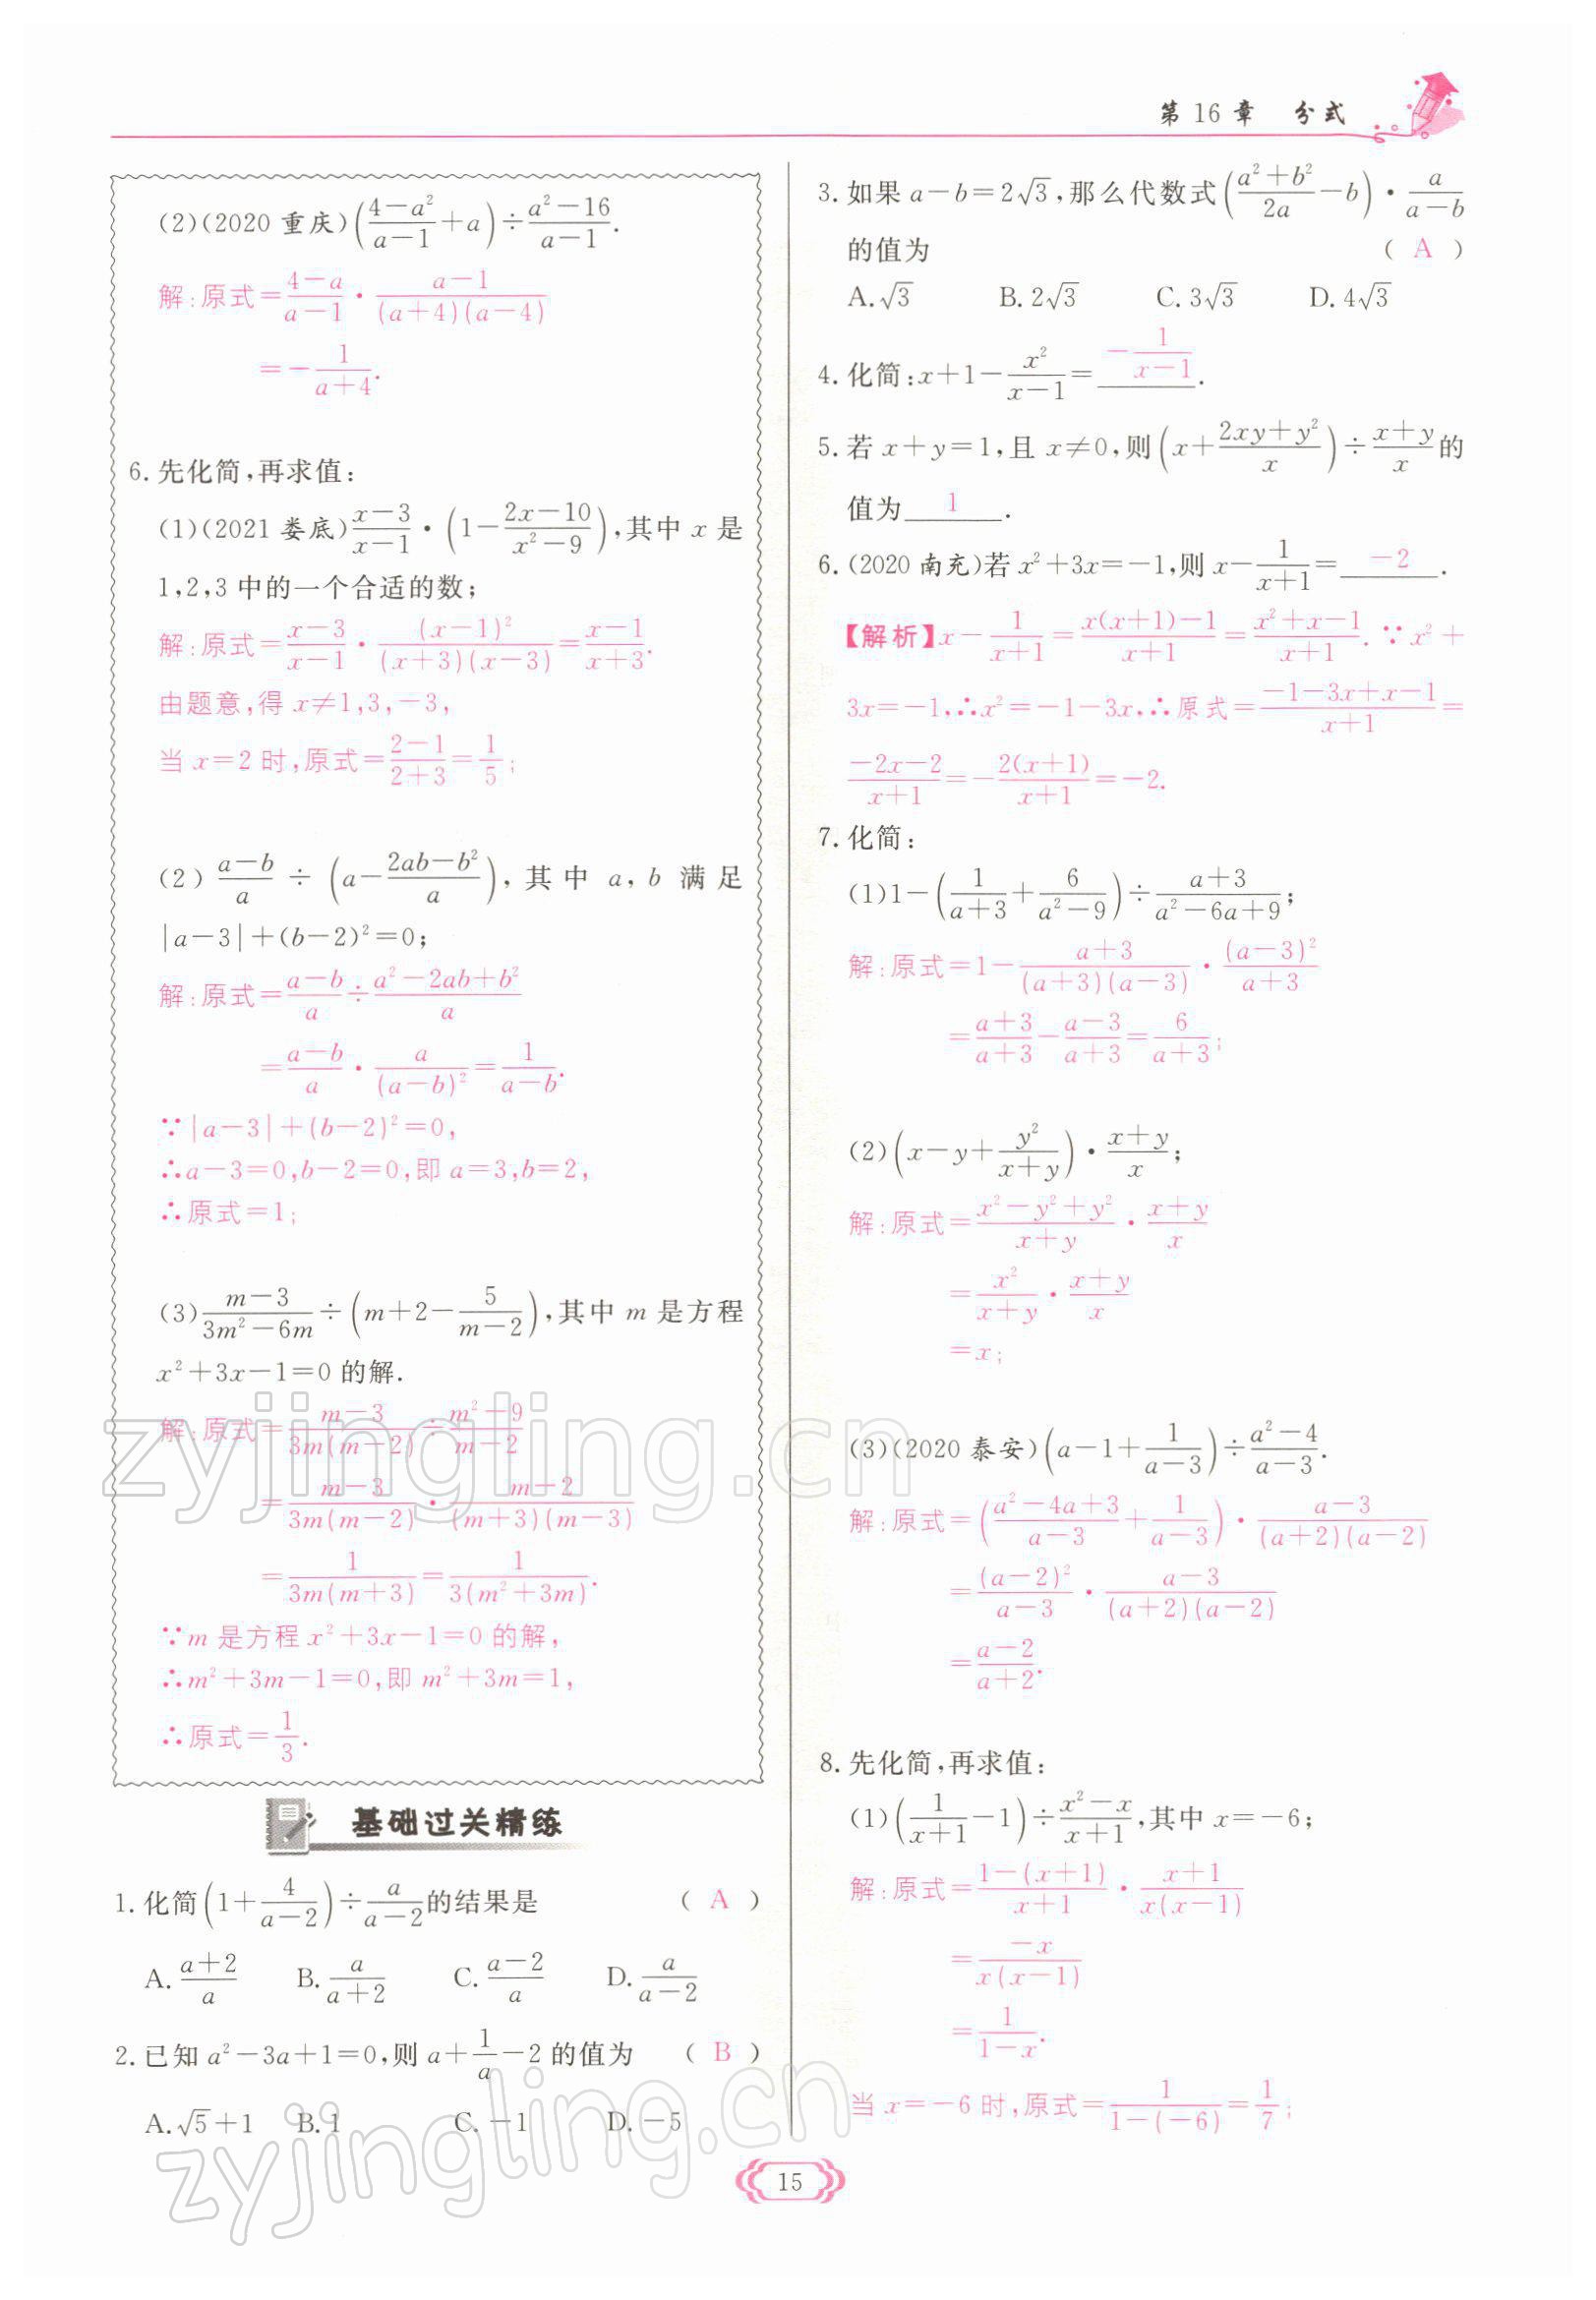 第16章 分式
(2)(2020 重庆)((4-a²)/(a-1)+a)÷(a²-16)/(a-1).
解:原式=(4-a)/(a-1)·(a-1)/((a+4)(a-4))
=-1/(a+4).
6.先化简,再求值:
(1)(2021 娄底)(x-3)/(x-1)·(1-(2x-10)/(x²-9)),其中 x 是
1,2,3 中的一个合适的数;
解:原式=(x-3)/(x-1)·(x-1)²/((x+3)(x-3))=(x-1)/(x+3).
由题意,得 x≠1,3,-3,
当 x=2 时,原式=(2-1)/(2+3)=1/5;
(2)(a-b)/a÷(a-(2ab-b²)/a),其中 a,b 满足
|a-3|+(b-2)²=0;
解:原式=(a-b)/a÷(a²-2ab+b²)/a
=(a-b)/a·a/(a-b)²=1/(a-b).
∵|a-3|+(b-2)²=0,
∴a-3=0,b-2=0,即 a=3,b=2,
∴原式=1;
(3)(m-3)/(3m²-6m)÷(m+2-5/(m-2)),其中 m 是方程
x²+3x-1=0 的解.
解:原式=(m-3)/(3m(m-2))÷(m²-9)/(m-2)
=(m-3)/(3m(m-2))·(m-2)/((m+3)(m-3))
=1/(3m(m+3))=1/(3(m²+3m)).
∵m 是方程 x²+3x-1=0 的解,
∴m²+3m-1=0,即 m²+3m=1,
∴原式=1/3.
基础过关精练
1.化简(1+4/(a-2))÷a/(a-2)的结果是 ( A )
A.(a+2)/a B.a/(a+2) C.(a-2)/a D.a/(a-2)
2.已知 a²-3a+1=0,则 a+1/a-2 的值为 ( B )
A.√5+1 B.1 C.-1 D.-5
3.如果 a-b=2√3,那么代数式((a²+b²)/2a-b)·a/(a-b)
的值为 ( A )
A.√3 B.2√3 C.3√3 D.4√3
4.化简:x+1-x²/(x-1)=-1/(x-1).
5.若 x+y=1,且 x≠0,则(x+(2xy+y²)/x)÷(x+y)/x的
值为 1 .
6.(2020 南充)若 x²+3x=-1,则 x-1/(x+1)= -2 .
【解析】x-1/(x+1)=(x(x+1)-1)/(x+1)=(x²+x-1)/(x+1).∵x²+
3x=-1,∴x²=-1-3x,∴原式=(-1-3x+x-1)/(x+1)=
(-2x-2)/(x+1)=-2(x+1)/(x+1)=-2.
7.化简:
(1)1-(1/(a+3)+6/(a²-9))÷(a+3)/(a²-6a+9);
解:原式=1-(a+3)/((a+3)(a-3))·(a-3)²/(a+3)
=(a+3)/(a+3)-(a-3)/(a+3)=6/(a+3);
(2)(x-y+y²/(x+y))·(x+y)/x;
解:原式=(x²-y²+y²)/(x+y)·(x+y)/x
=x²/(x+y)·(x+y)/x
=x;
(3)(2020 泰安)(a-1+1/(a-3))÷(a²-4)/(a-3).
解:原式=((a²-4a+3)/(a-3)+1/(a-3))·(a-3)/((a+2)(a-2))
=(a-2)²/(a-3)·(a-3)/((a+2)(a-2))
=(a-2)/(a+2).
8.先化简,再求值:
(1)(1/(x+1)-1)÷(x²-x)/(x+1),其中 x=-6;
解:原式=(1-(x+1))/(x+1)·(x+1)/(x(x-1))
=-x/(x(x-1))
=1/(1-x).
当 x=-6 时,原式=1/(1-(-6))=1/7;
15
zyjingling.cn
zyjingling.cn